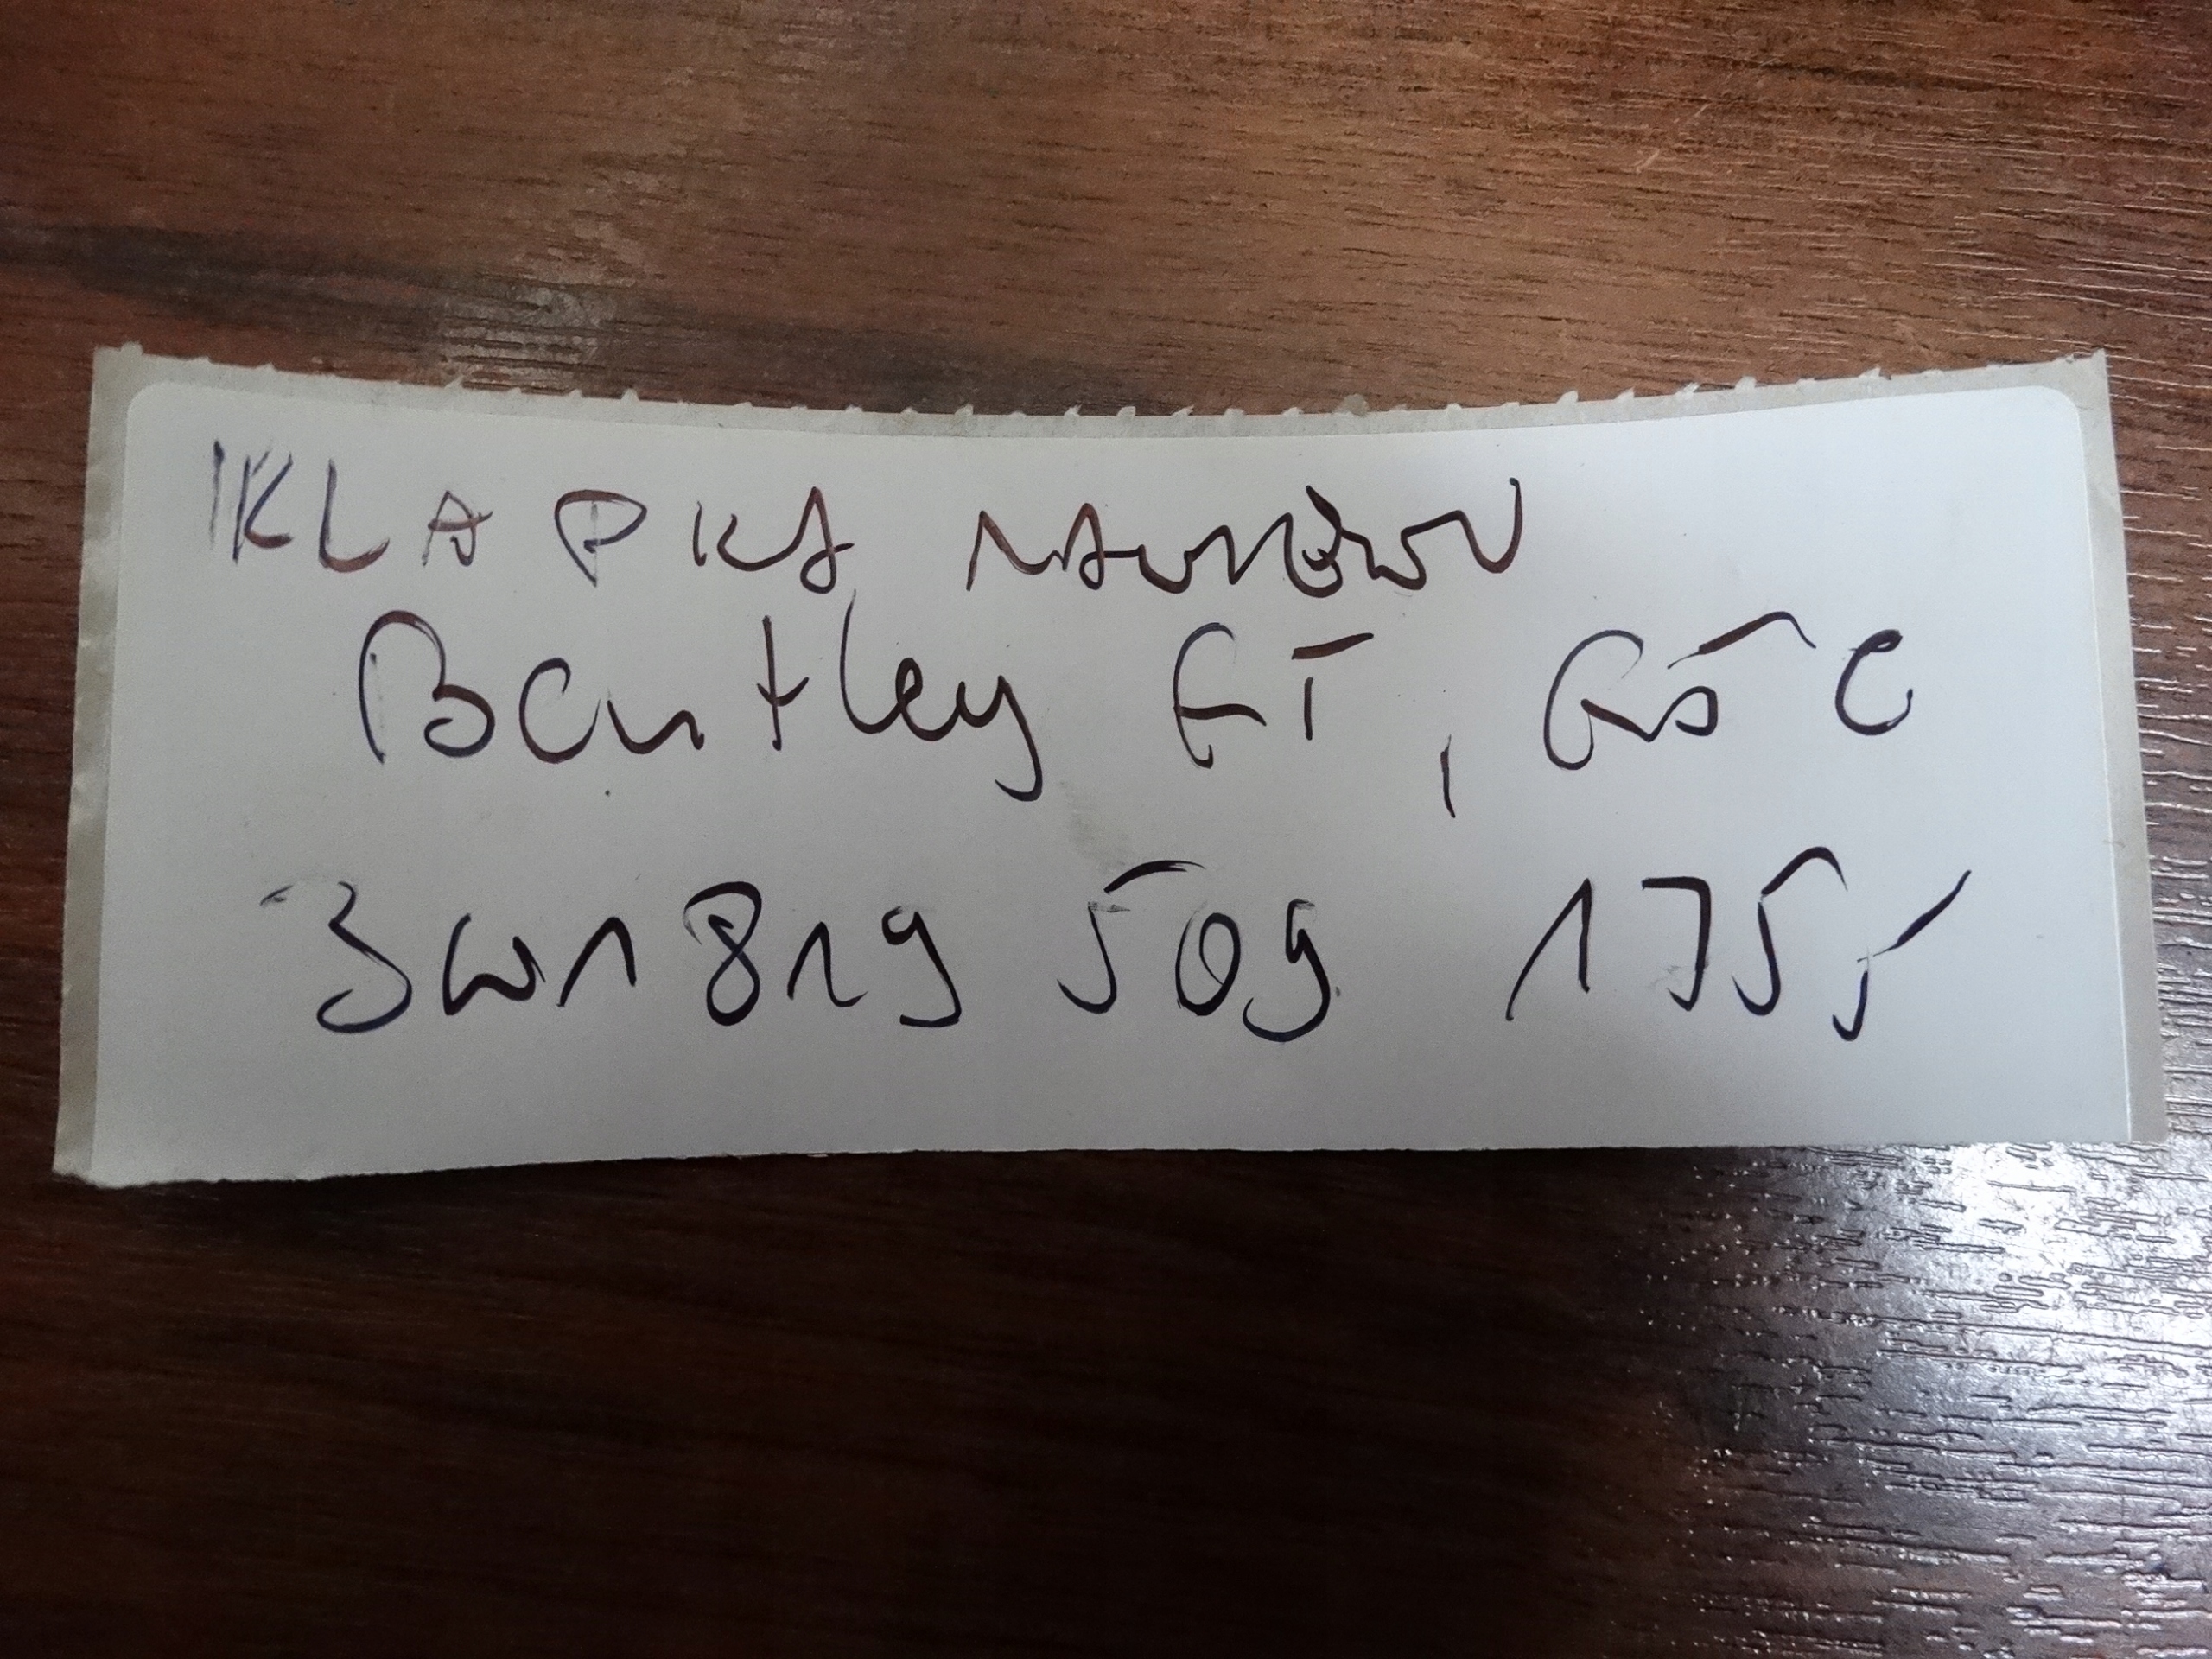 KLAPKA NAWIEWU
Bentley GT, G5C
3W1819 509 175,-